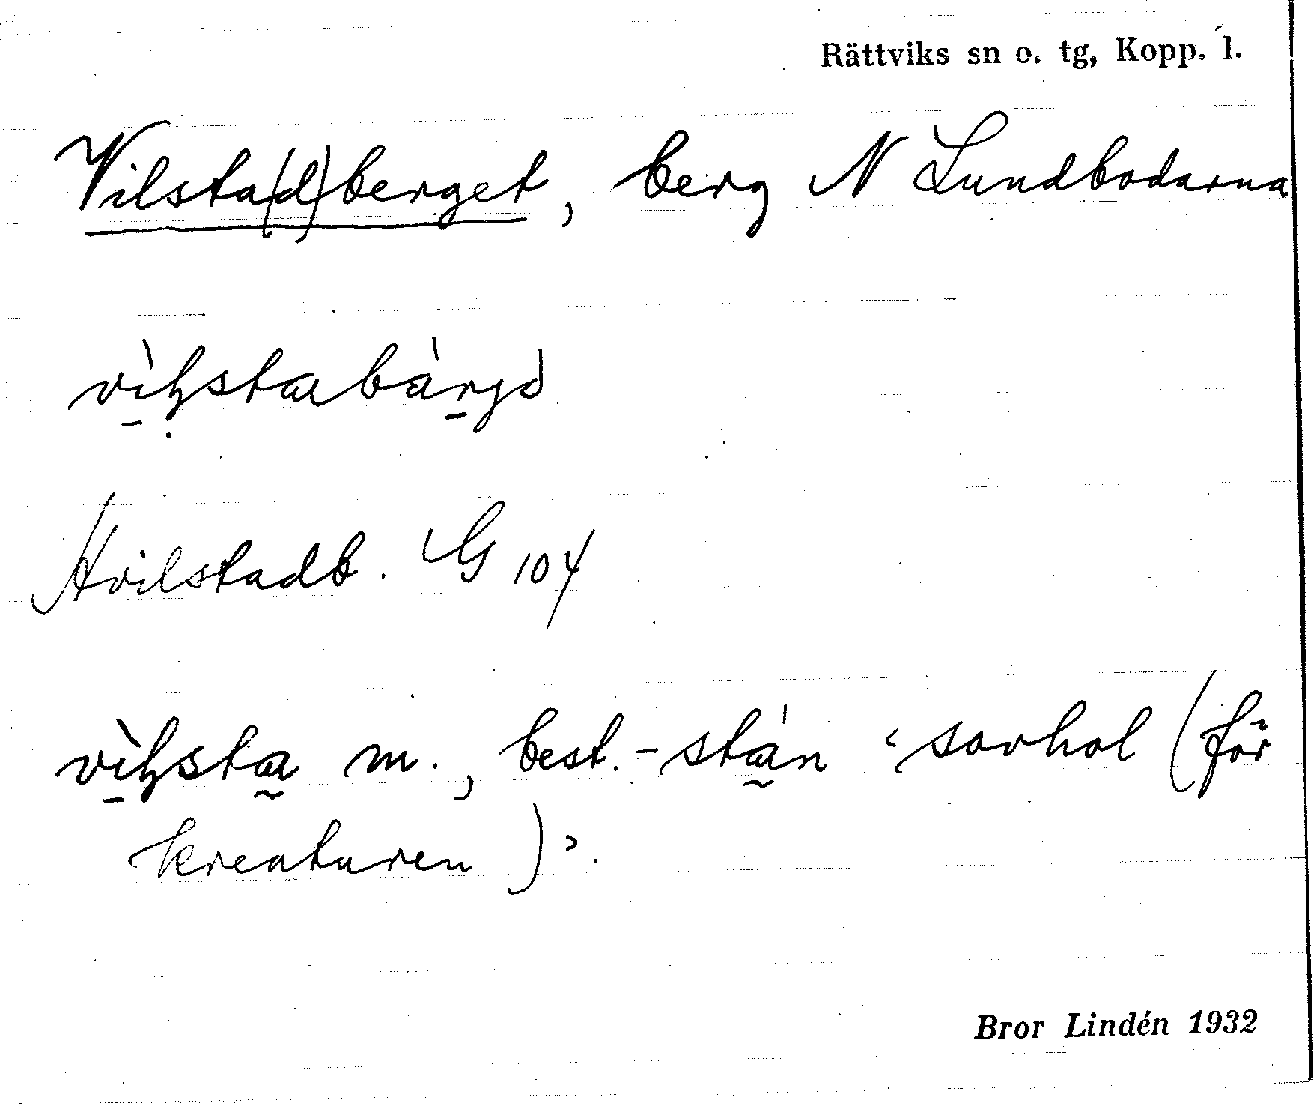 Rättviks sn o. tg, Kopp. l.
Vilsta(d)berget, berg N Lundbodarna
Hvilstadb. G 104
m., best. -stán ‘sovhol (för
kreaturen)’.
Bror Lindén 1932